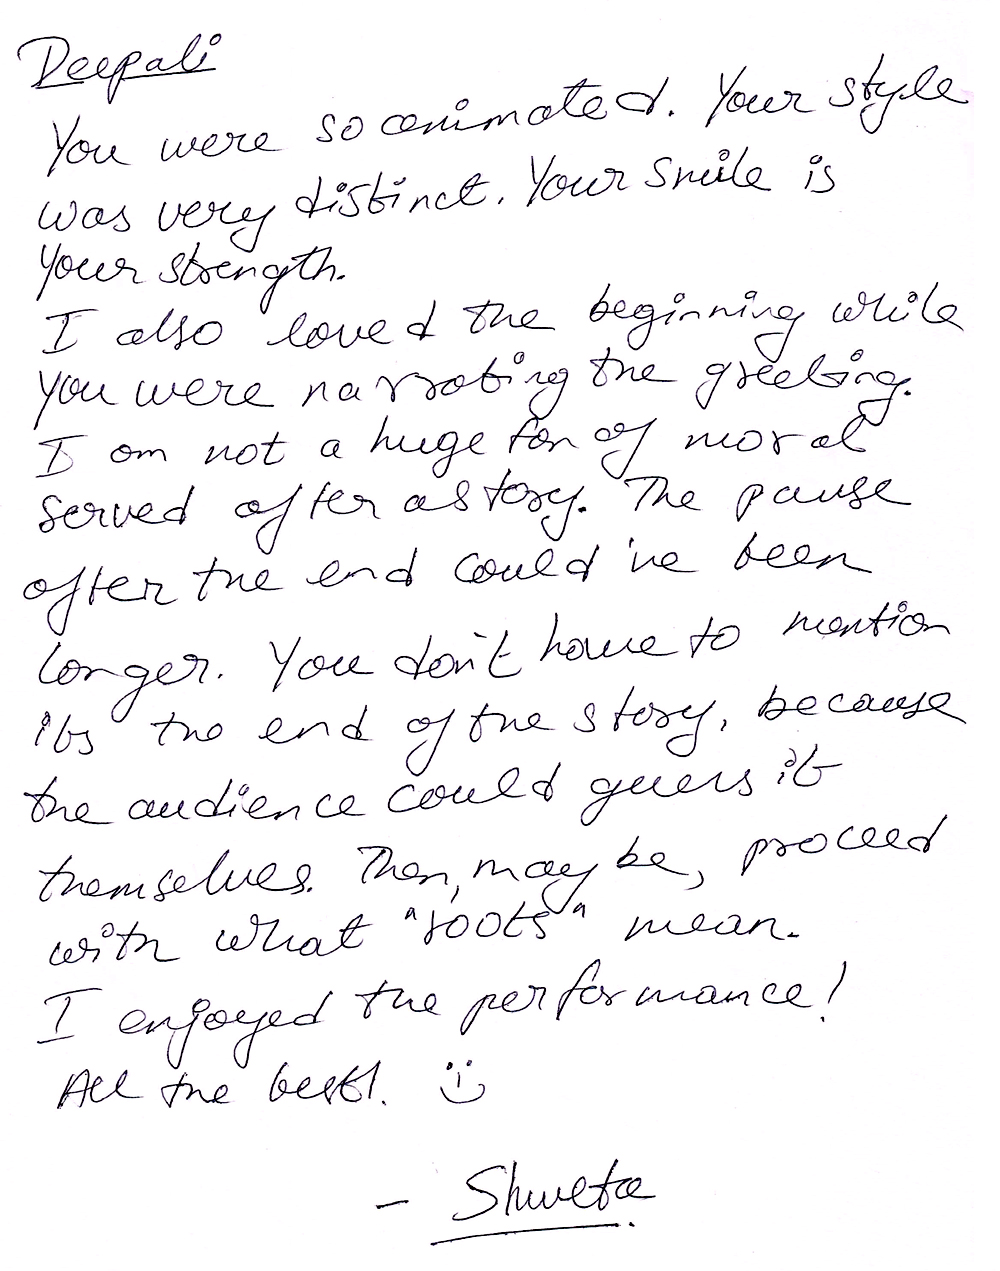 Deepali
You were so animated. Your style
was very distinct. Your smile is
your strength.
I also loved the beginning while
you were narrating the greeting.
I am not a huge fan of moral
served after a story. The pause
after the end could've been
longer. You don't have to mention
its the end of the story, because
the audience could guess it
themselves. Then, may be, proceed
with what "roots" mean.
I enjoyed the performance!
All the best!. :)
- Shweta